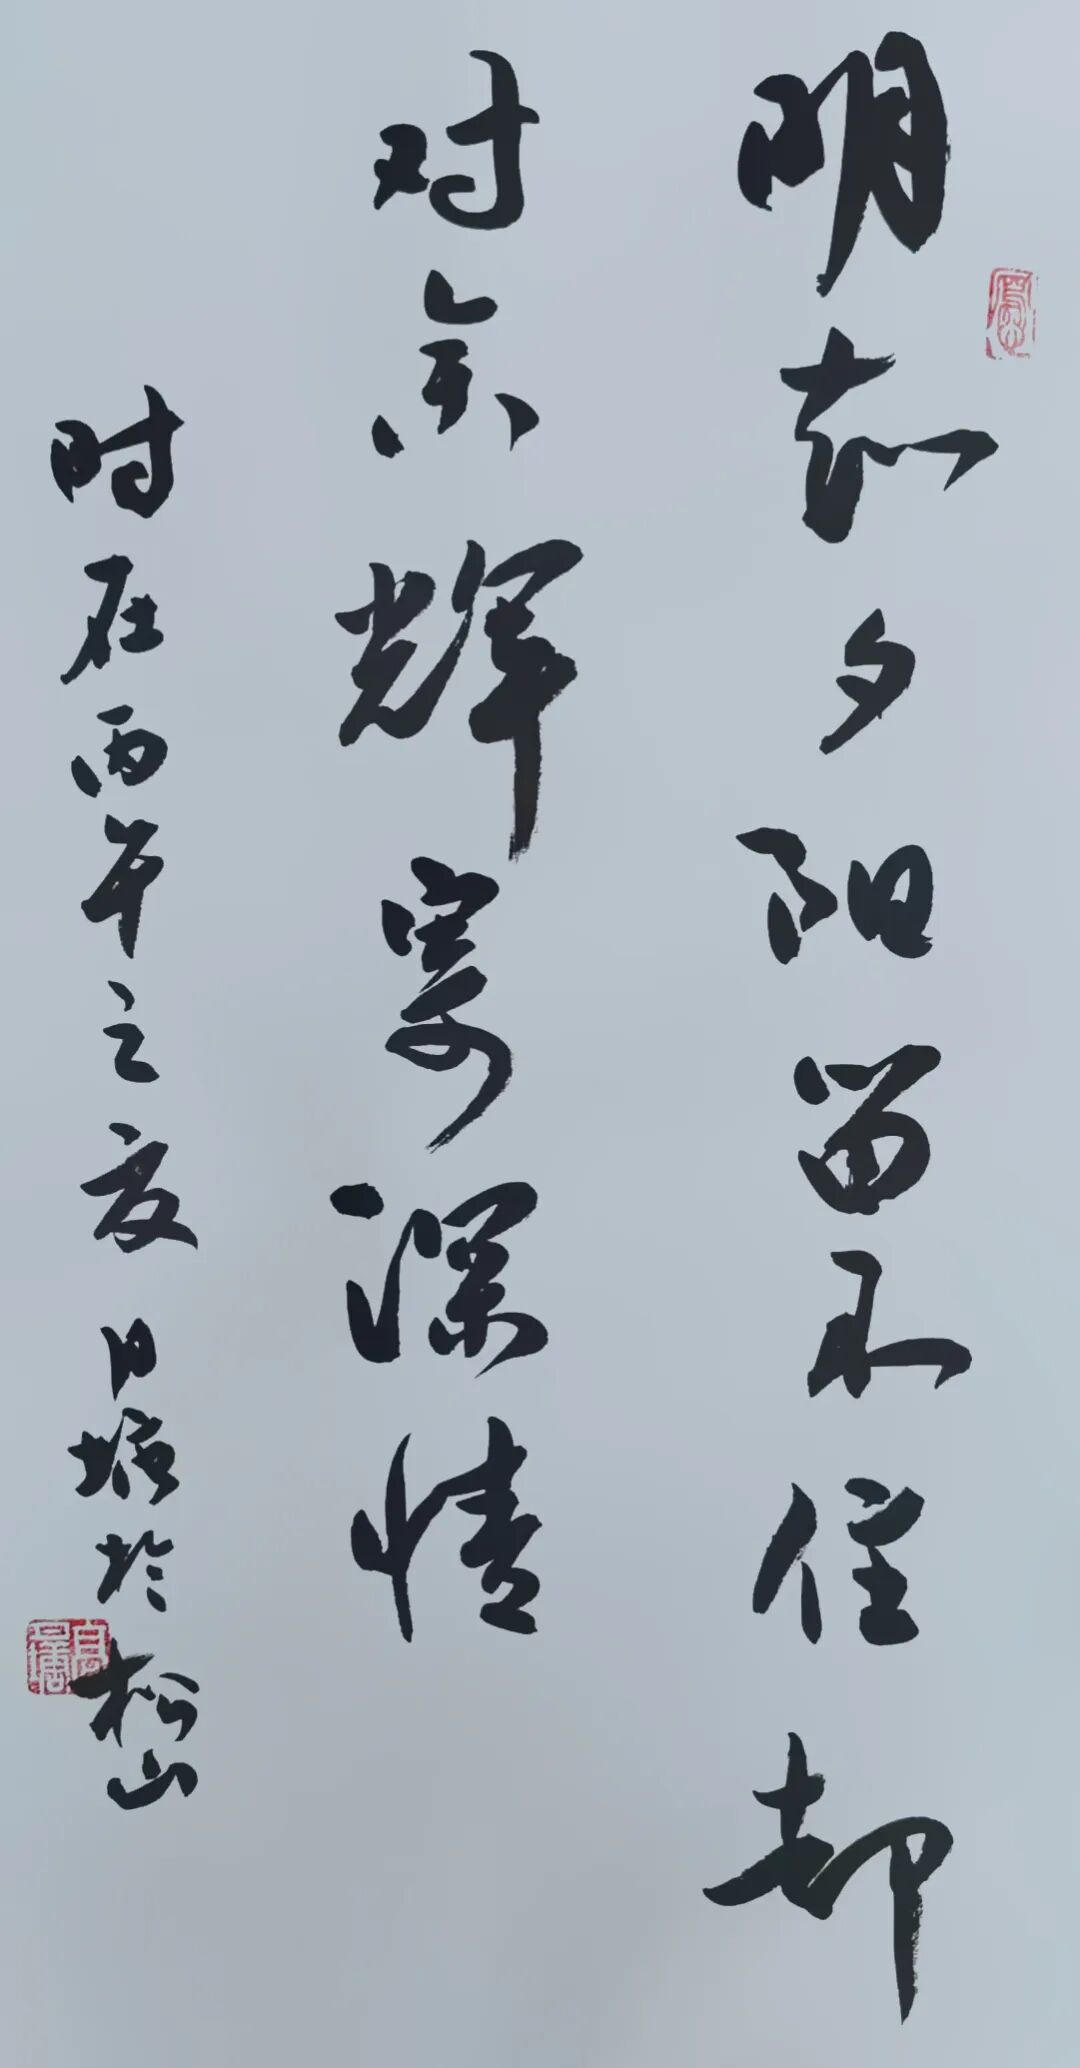 明知夕阳留不住却
对余辉寄深情
时在丙午之夏日墉於松山